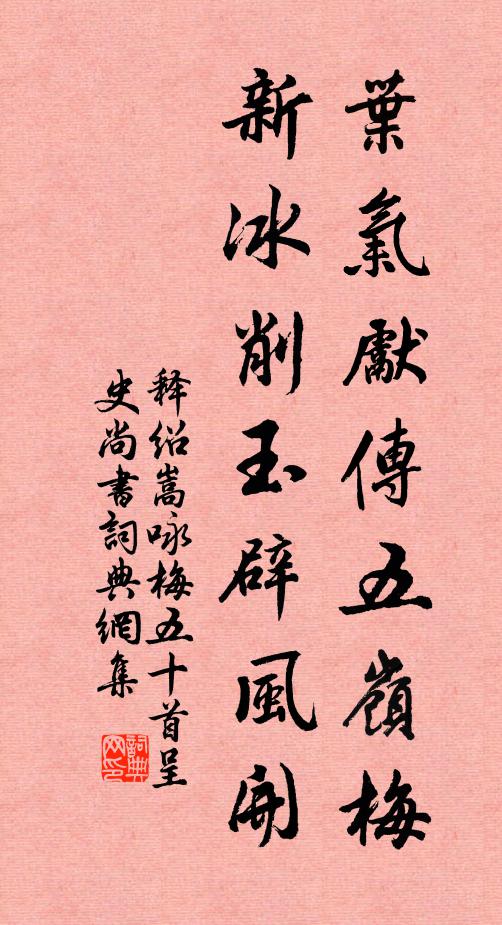 葉氣獻傳五嶺梅
新冰削玉辟風開
释紹嵩咏梅五十首呈
史尚書詞典網集
詞典网印